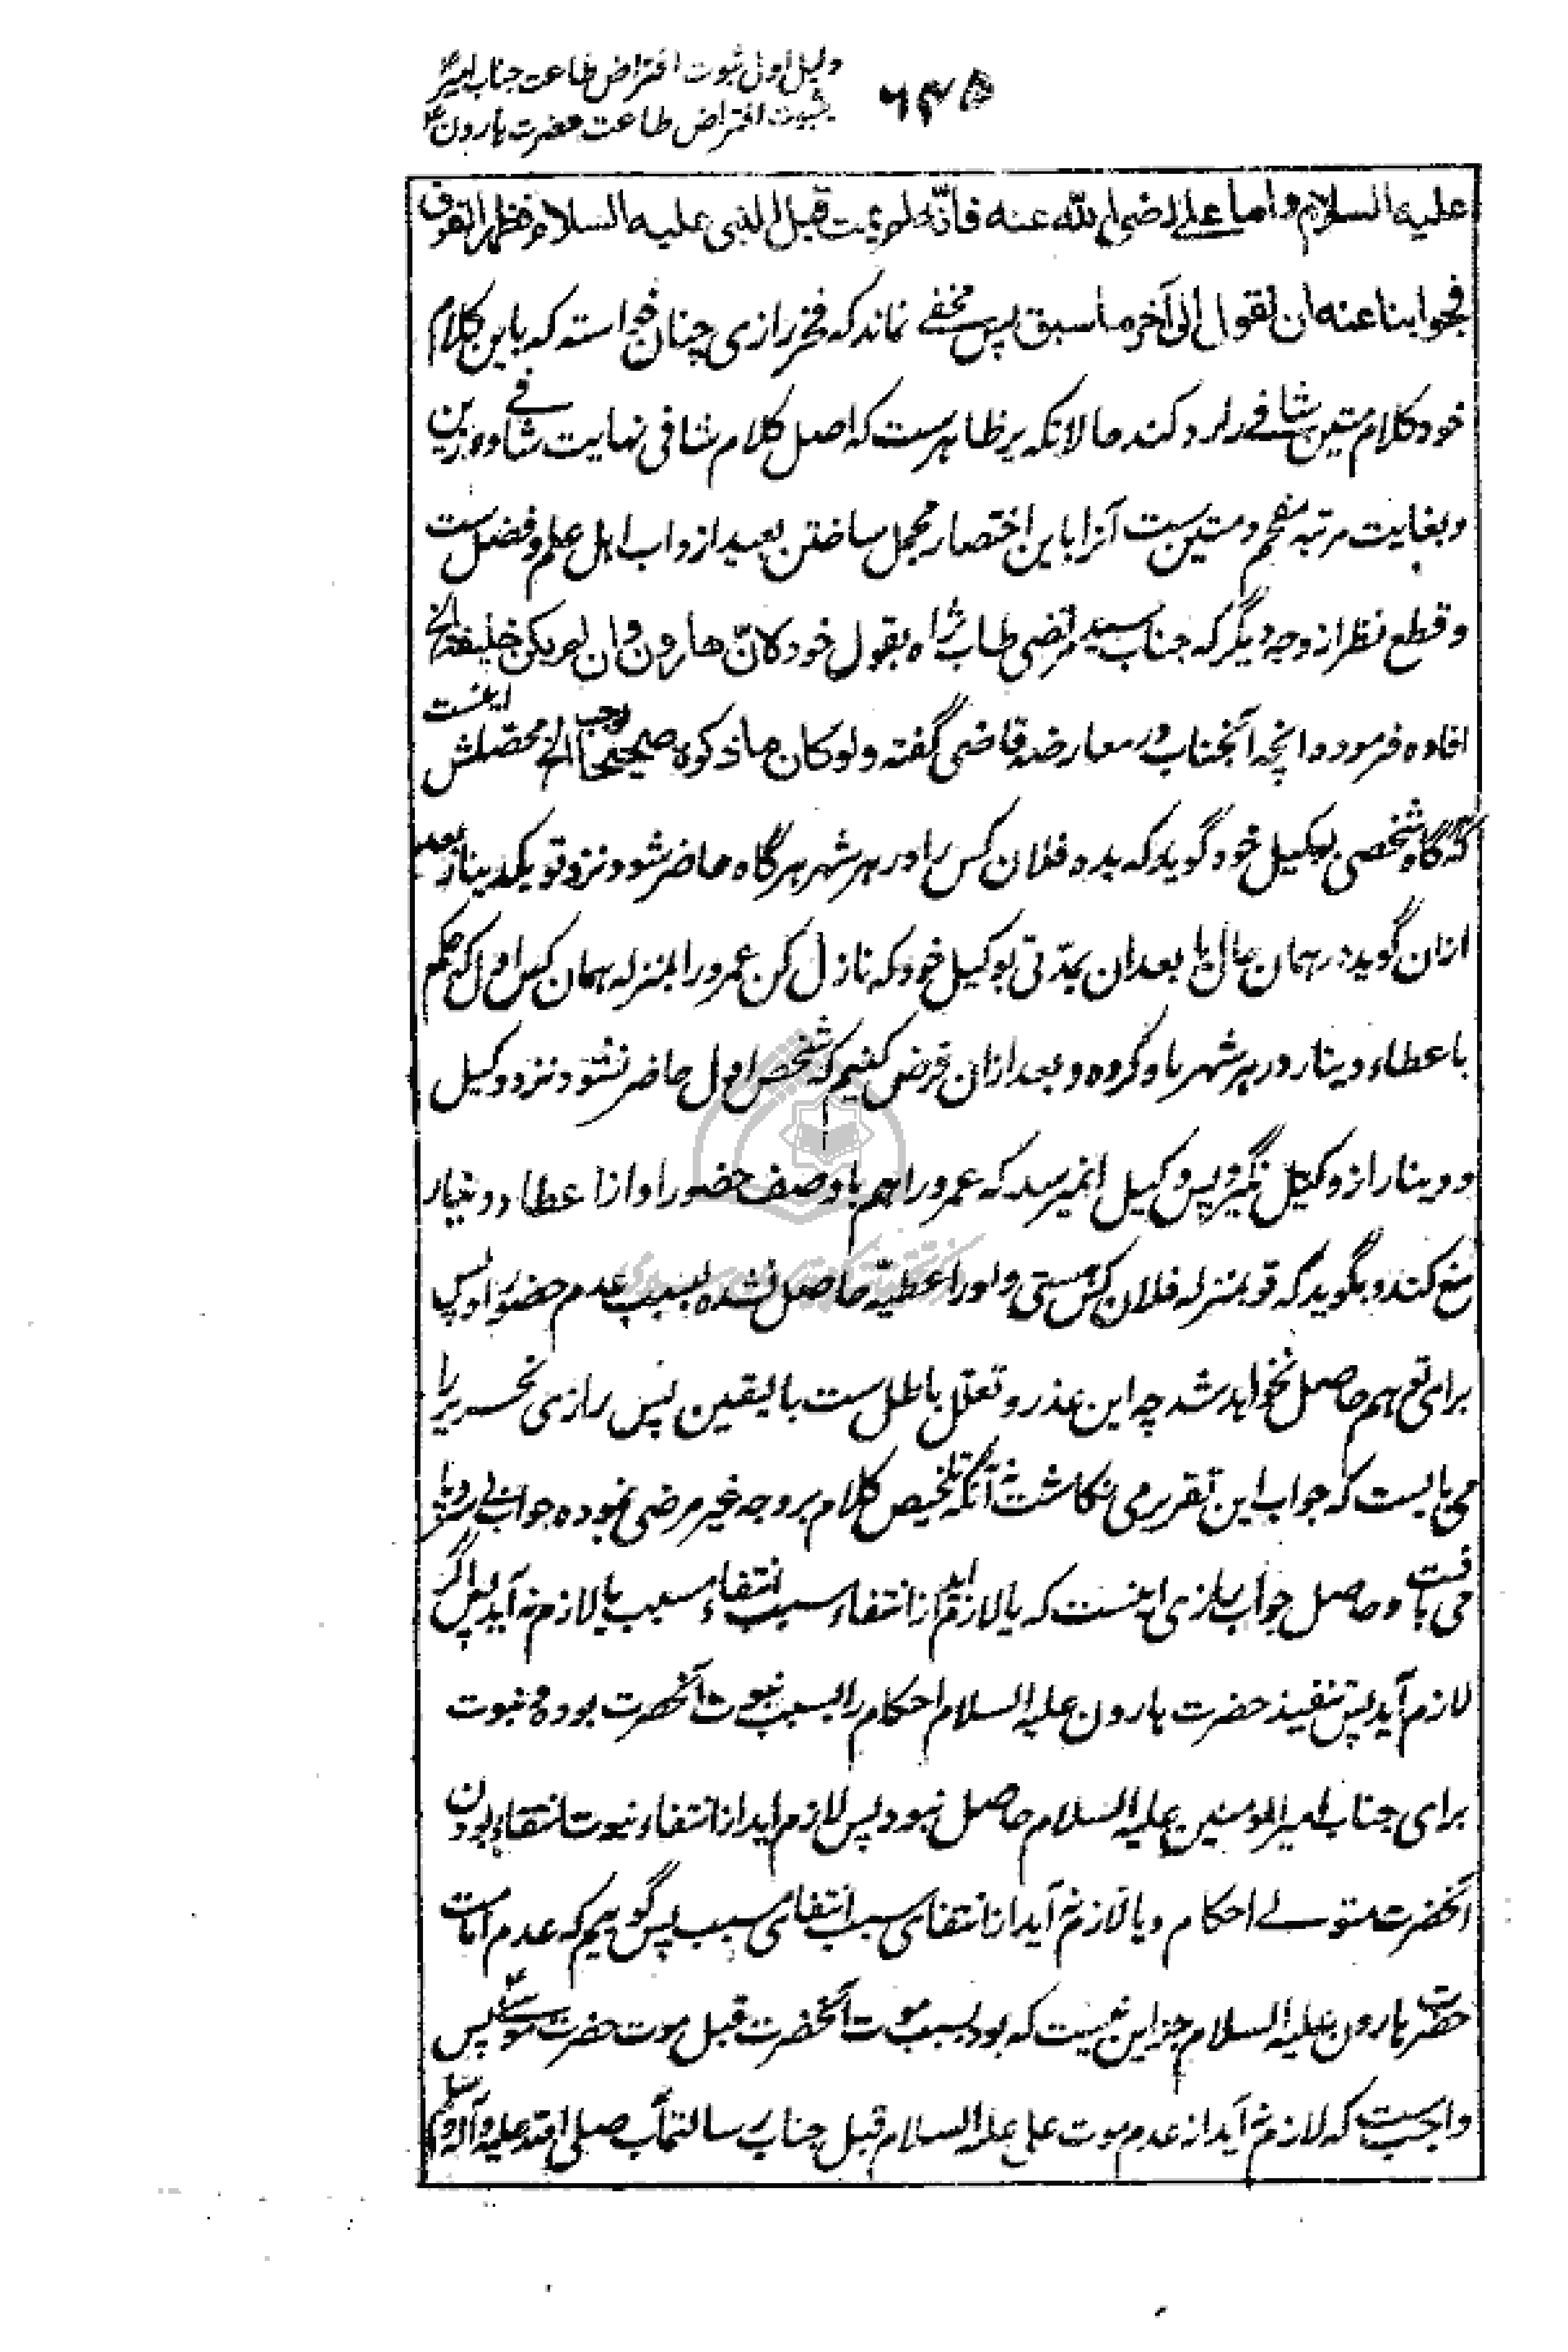 دلیل اول ثبوت افتراض طاعت جناب امیرؑ
۶۴۵
بثبوت افتراض طاعت حضرت هارونؑ
علیه السلام واما علی رضی الله عنه فانّه لم یمت قبل النبی علیه السلام فظهر الفرق
فجوابنا عنه ان نقول الی آخر ما سبق پس مخفی نماند که فخر رازی چنان خواسته که باین کلام
خود کلام متین شافی را رد کند حالانکه پر ظاهرست که اصل کلام شافی نهایت شافی و رزین
و بغایت مرتبه مفحم و متین ست آنرا باین اختصار مجمل ساختن بعید از داب اهل علم و فضل ست
و قطع نظر از وجه دیگر که جناب سید مرتضی طاب ثراه بقول خود لانّ هارون وان لم یکن خلیفة الخ
افاده فرموده انچه آنجناب در معارضه قاضی گفته ولو کان ما ذکروه صحیحا لوجب الخ محصلش اینست
که هرگاه شخصی بوکیل خود گوید که بده فلان کس را در هر شهر هرگاه حاضر شود نزد تو یکدینار بعد
ازان گوید در همان حال یا بعد ان بمدّتی بوکیل خود که نازل کن عمرو را بمنزله همان کس اول که حکم
باعطاء دینار در هر شهر باو کرده و بعد ازان فرض کنیم که شخص اول حاضر نشود نزد وکیل
و دینار از وکیل نگیرد پس وکیل را نمیرسد که عمرو را هم با وصف حضور او از اعطاء دینار
منع کند و بگوید که تو بمنزله فلان کس هستی و او را عطیّه حاصل نشده بسبب عدم حضور او پس
برای تو هم حاصل نخواهد شد چه این عذر و تعلل باطل ست بالیقین پس رازی نحریر را
می بایست که جواب این تقریر می نگاشت نه آنکه تلخیص کلام بر وجه غیر مرضی نموده جواب بی ربط
می یافت و حاصل جواب رازی اینست که یا لازم آید از انتفاء سبب انتفاء مسبب یا لازم نه آید پس اگر
لازم آید پس تنفیذ حضرت هارون علیه السلام احکام را بسبب نبوت آنحضرت بوده و نبوت
برای جناب امیر المومنین علیه السلام حاصل نبود پس لازم اید از انتفاء نبوت انتفاء بودن
آنحضرت متولے احکام و یا لازم نه آید از انتفای سبب انتفای مسبب پس گوییم که عدم امامت
حضرت هارون علیه السلام جز این نیست که بود بسبب موت آنحضرت قبل موت حضرت موسیؑ پس
واجبست که لازم نه آید از عدم موت علی علیه السلام قبل جناب رسالتمآب صلی الله علیه وآله وسلم